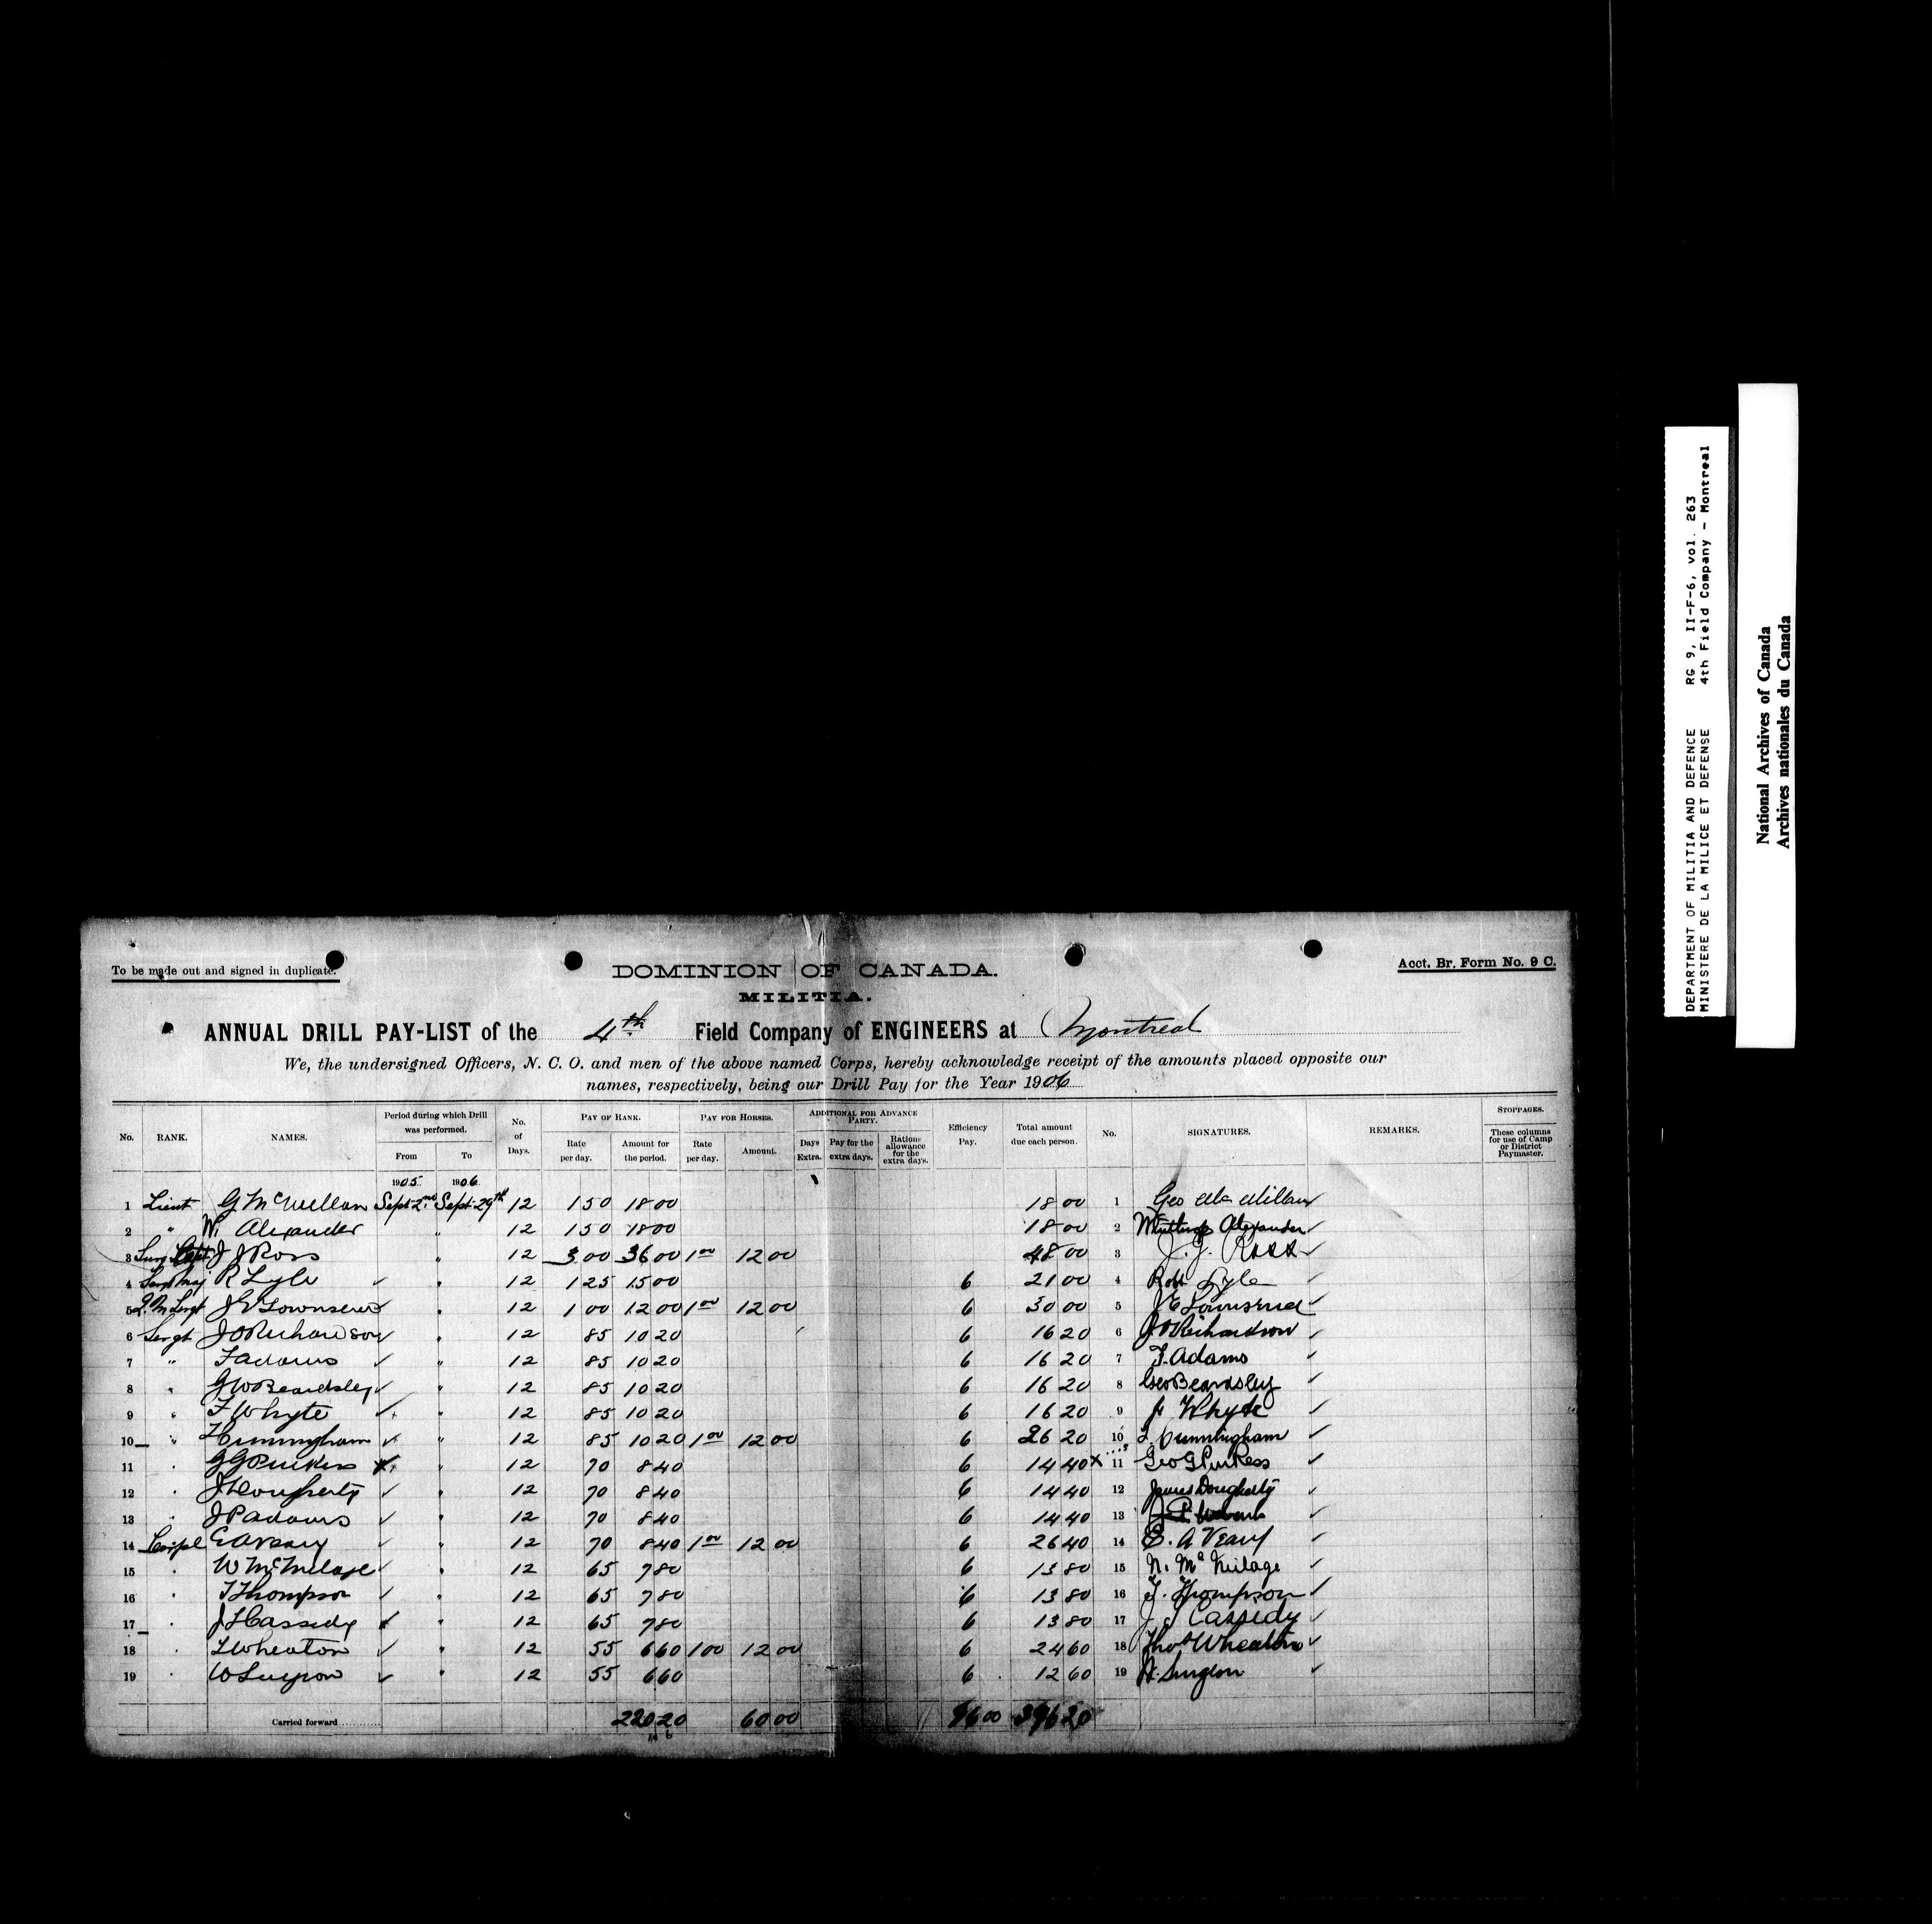 To be made out and signed in duplicate.
DOMINION OF CANADA.
Acct. Br. Form No. 9 C.
MILITIA.
ANNUAL DRILL PAY-LIST of the 4th Field Company of ENGINEERS at Montreal
We, the undersigned Officers, N. C. O. and men of the above named Corps, hereby acknowledge receipt of the amounts placed opposite our
names, respectively, being our Drill Pay for the Year 1906
No. RANK. NAMES. Period during which Drill was performed. From To No. of Days. PAY OF RANK. Rate per day. Amount for the period. PAY FOR HORSES. Rate per day. Amount. ADDITIONAL FOR ADVANCE PARTY. Days Extra. Pay for the extra days. Rations allowance for the extra days. Efficiency Pay. Total amount due each person. No. SIGNATURES. REMARKS. STOPPAGES. These columns for use of Camp or District Paymaster.
1905 1906
1 Lieut G McMillan Sept 2nd Sept 29th 12 1 50 18 00 18 00 1 Geo MacMillan ✓
2 " W. Alexander " 12 1 50 18 00 18 00 2 Winthrop Alexander ✓
3 Surg Capt J J Ross " 12 3 00 36 00 1 00 12 00 48 00 3 J. J. Ross ✓
4 Sergt Maj R Lyle ✓ " 12 1 25 15 00 6 21 00 4 Robt Lyle ✓
5 Q. M Sergt J E Townsend ✓ " 12 1 00 12 00 1 00 12 00 6 30 00 5 J E Townsend ✓
6 Sergt J O Richardson ✓ " 12 85 10 20 6 16 20 6 J O Richardson ✓
7 " F Adams ✓ " 12 85 10 20 6 16 20 7 F. Adams ✓
8 " G W Beardsley ✓ " 12 85 10 20 6 16 20 8 Geo Beardsley ✓
9 " F Whyte ✓ " 12 85 10 20 6 16 20 9 Whyte ✓
10 " Cunningham ✓ " 12 85 10 20 1 00 12 00 6 26 20 10 Cunningham ✓
11 " G G Purkess " 12 70 8 40 6 14 40 x 11 Geo G Purkess ✓
12 " J Dougherty ✓ " 12 70 8 40 6 14 40 12 James Dougherty ✓
13 " J P Adams ✓ " 12 70 8 40 6 14 40 13 ✓
14 Corpl E A Veary ✓ " 12 70 8 40 1 00 12 00 6 26 40 14 E. A Veary ✓
15 " W McNeilage ✓ " 12 65 7 80 6 13 80 15 McNeilage ✓
16 " T Thompson ✓ " 12 65 7 80 6 13 80 16 T. Thompson ✓
17 " J Cassidy " 12 65 7 80 6 13 80 17 J Cassidy ✓
18 " T Wheaton ✓ " 12 55 6 60 1 00 12 00 6 24 60 18 Thos Wheaton ✓
19 " W ✓ " 12 55 6 60 6 12 60 19 ✓
Carried forward 220 20 60 00 96 00 20
DEPARTMENT OF MILITIA AND DEFENCE RG 9, II-F-6, vol. 263
MINISTERE DE LA MILICE ET DEFENSE 4th Field Company - Montreal
National Archives of Canada
Archives nationales du Canada